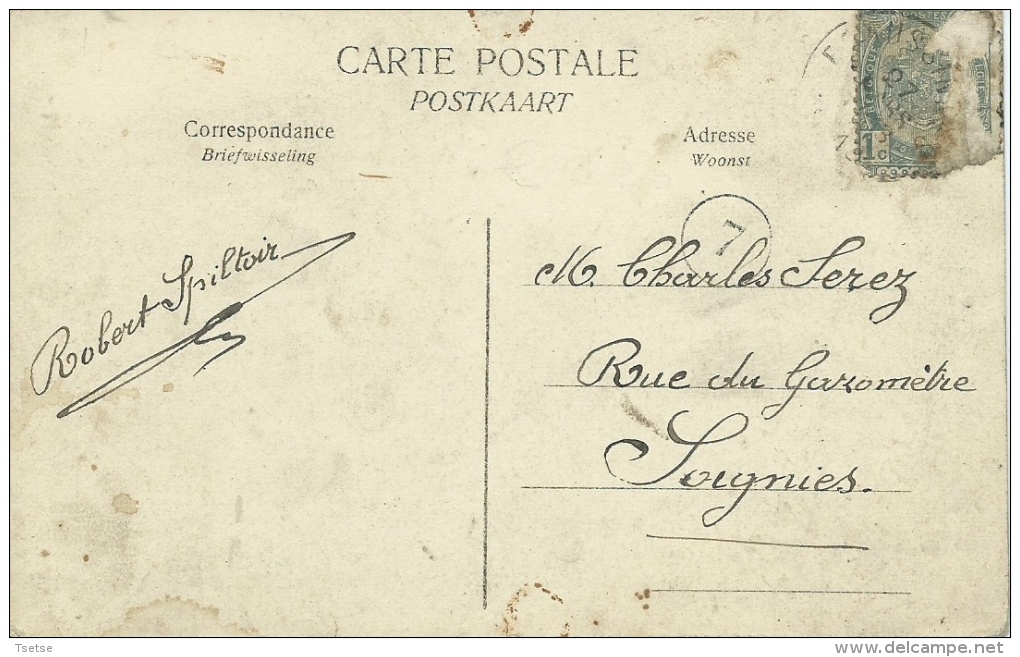 CARTE POSTALE
POSTKAART
Correspondance
Briefwisseling
Adresse
Woonst
7
1c
Robert Spiltoir
M. Charles Serez
Rue du Gazomètre
Soignies.
Tsetse
delcampe.net